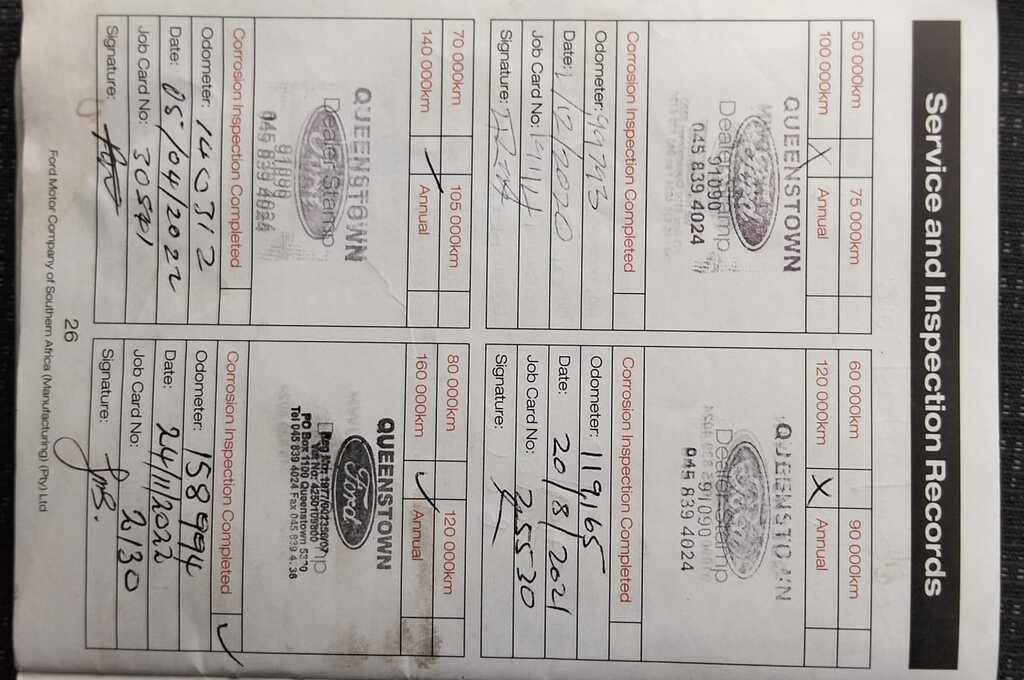 Service and Inspection Records
50 000km 75 000km
100 000km X Annual
QUEENSTOWN
Ford
Dealer Stamp
91090
045 839 4024
Corrosion Inspection Completed
Odometer: 99793
Date: 1/12/2020
Job Card No: 19114
Signature:
60 000km 90 000km
120 000km X Annual
QUEENSTOWN
Ford
Dealer Stamp
91090
045 839 4024
Corrosion Inspection Completed
Odometer: 119,165
Date: 20/8/2021
Job Card No: 25530
Signature:
70 000km 105 000km
140 000km ✓ Annual
QUEENSTOWN
Ford
Dealer Stamp
91090
045 839 4024
Corrosion Inspection Completed
Odometer: 140312
Date: 05/04/2022
Job Card No: 30591
Signature:
80 000km 120 000km
160 000km ✓ Annual
QUEENSTOWN
Ford
PO Box 1100 Queenstown
Tel 045 839 4024 Fax 045 839
Corrosion Inspection Completed ✓
Odometer: 158994
Date: 24/11/2022
Job Card No: 2130
Signature:
26
Ford Motor Company of Southern Africa (Manufacturing) (Pty) Ltd